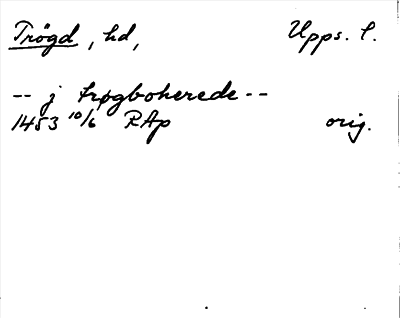 Trögd, hd, Upps. l.
-- j trøgboherede --
1453 10/6 RAp orig.